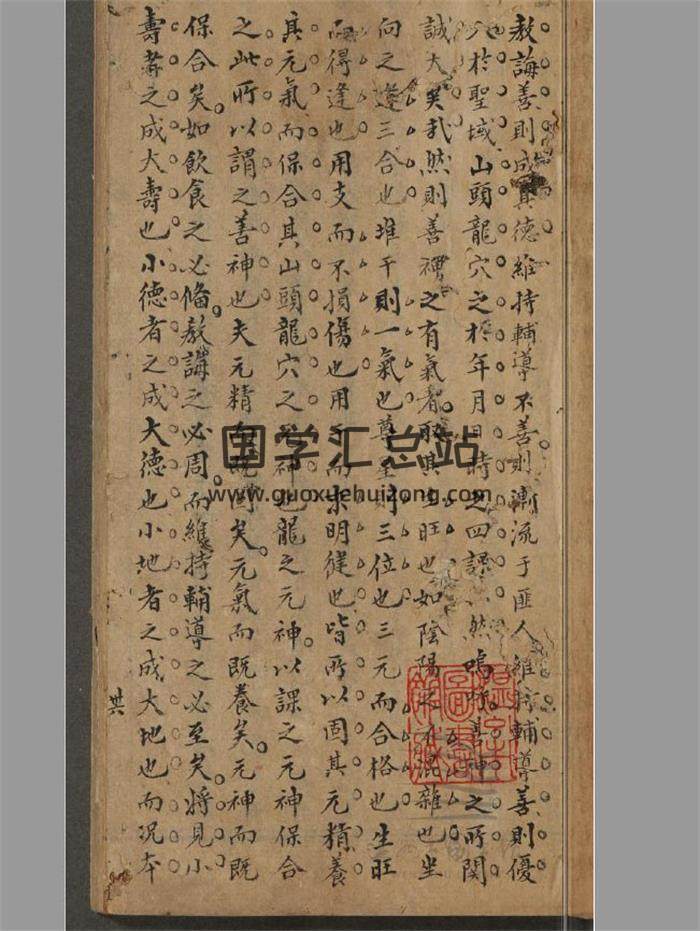 教誨善則成其德維持輔導不善則漸流于匪人維持輔導善則優
入於聖域山頭龍穴之於年月日時之四課然嗚呼善神之所関
誠大矣哉然則善神之有氣者取其生旺也如陰陽之不混雜也坐
向之逢三合也堆干則一氣也尊星則三位也三元而合格也生旺
而得逢也用支而不損傷也用干而求明健也皆所以固其元精養
其元氣而保合其山頭龍穴之元神也龍之元神以課之元神保合
之此所以謂之善神也夫元精而既固矣元氣而既養矣元神而既
保合矣如飲食之必偹教誨之必周而維持輔導之必至矣將見小
壽者之成大壽也小德者之成大德也小地者之成大地也而况本
共
国学汇总站
www.guoxuehuizong.com